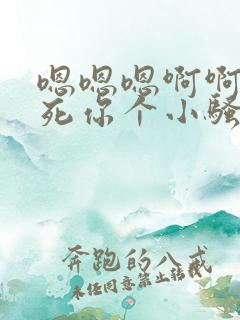 嗯嗯嗯啊啊
死你个小骚
奔跑的八戒
未经同意禁止转载